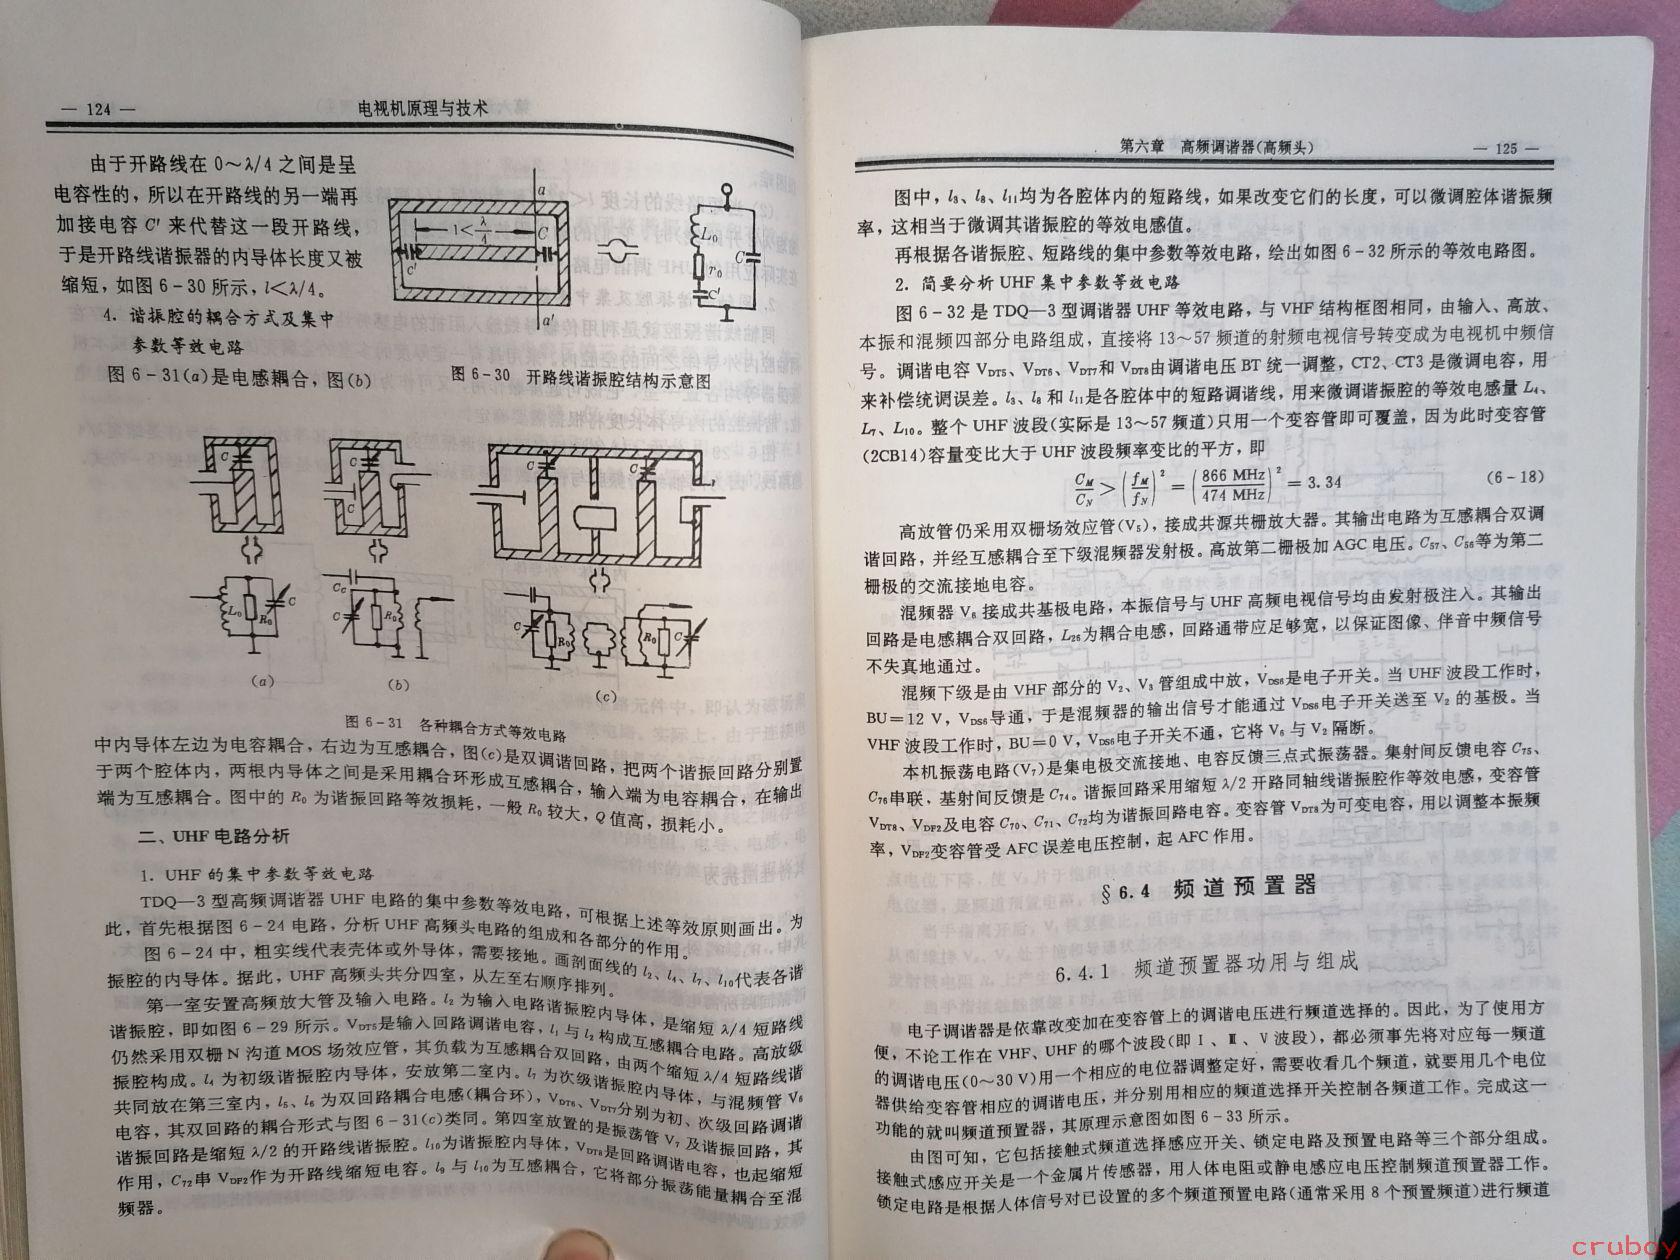 — 124 —
电视机原理与技术
由于开路线在 0～λ/4 之间是呈
电容性的，所以在开路线的另一端再
加接电容 C′ 来代替这一段开路线，
于是开路线谐振器的内导体长度又被
缩短，如图 6-30 所示，l＜λ/4。
4．谐振腔的耦合方式及集中
参数等效电路
图 6-31(a)是电感耦合，图(b)
图 6-30 开路线谐振腔结构示意图
(a)
(b)
(c)
图 6-31 各种耦合方式等效电路
中内导体左边为电容耦合，右边为互感耦合，图(c)是双调谐回路，把两个谐振回路分别置
于两个腔体内，两根内导体之间是采用耦合环形成互感耦合，输入端为电容耦合，在输出
端为互感耦合。图中的 R₀ 为谐振回路等效损耗，一般 R₀ 较大，Q 值高，损耗小。
二、UHF 电路分析
1．UHF 的集中参数等效电路
TDQ—3 型高频调谐器 UHF 电路的集中参数等效电路，可根据上述等效原则画出。为
此，首先根据图 6-24 电路，分析 UHF 高频头电路的组成和各部分的作用。
图 6-24 中，粗实线代表壳体或外导体，需要接地。画剖面线的 l₂、l₄、l₇、l₁₀代表各谐
振腔的内导体。据此，UHF 高频头共分四室，从左至右顺序排列。
第一室安置高频放大管及输入电路。l₂ 为输入电路谐振腔内导体，是缩短 λ/4 短路线
谐振腔，即如图 6-29 所示。V_DT5是输入回路调谐电容，l₁ 与 l₂ 构成互感耦合电路。高放级
仍然采用双栅 N 沟道 MOS 场效应管，其负载为互感耦合双回路，由两个缩短 λ/4 短路线谐
振腔构成。l₄ 为初级谐振腔内导体，安放第二室内。l₇ 为次级谐振腔内导体，与混频管 V₆
共同放在第三室内，l₅、l₆ 为双回路耦合电感(耦合环)，V_DT6、V_DT7分别为初、次级回路调谐
电容，其双回路的耦合形式与图 6-31(c)类同。第四室放置的是振荡管 V₇ 及谐振回路，其
谐振回路是缩短 λ/2 的开路线谐振腔。l₁₀为谐振腔内导体，V_DT8是回路调谐电容，也起缩短
作用，C₇₂串 V_DF2作为开路线缩短电容。l₉ 与 l₁₀为互感耦合，它将部分振荡能量耦合至混
频器。
第六章 高频调谐器(高频头)
— 125 —
图中，l₃、l₈、l₁₁均为各腔体内的短路线，如果改变它们的长度，可以微调腔体谐振频
率，这相当于微调其谐振腔的等效电感值。
再根据各谐振腔、短路线的集中参数等效电路，绘出如图 6-32 所示的等效电路图。
2．简要分析 UHF 集中参数等效电路
图 6-32 是 TDQ—3 型调谐器 UHF 等效电路，与 VHF 结构框图相同，由输入、高放、
本振和混频四部分电路组成，直接将 13～57 频道的射频电视信号转变成为电视机中频信
号。调谐电容 V_DT5、V_DT6、V_DT7和 V_DT8由调谐电压 BT 统一调整，CT2、CT3 是微调电容，用
来补偿统调误差。l₃、l₈ 和 l₁₁是各腔体中的短路调谐线，用来微调谐振腔的等效电感量 L₄、
L₇、L₁₀。整个 UHF 波段(实际是 13～57 频道)只用一个变容管即可覆盖，因为此时变容管
(2CB14)容量变比大于 UHF 波段频率变比的平方，即
C_M/C_N ＞ (f_M/f_N)² = (866 MHz/474 MHz)² = 3.34 (6-18)
高放管仍采用双栅场效应管(V₅)，接成共源共栅放大器。其输出电路为互感耦合双调
谐回路，并经互感耦合至下级混频器发射极。高放第二栅极加 AGC 电压。C₅₇、C₅₈等为第二
栅极的交流接地电容。
混频器 V₆ 接成共基极电路，本振信号与 UHF 高频电视信号均由发射极注入。其输出
回路是电感耦合双回路，L₂₆为耦合电感，回路通带应足够宽，以保证图像、伴音中频信号
不失真地通过。
混频下级是由 VHF 部分的 V₂、V₃ 管组成中放，V_DS6是电子开关。当 UHF 波段工作时，
BU＝12 V，V_DS6导通，于是混频器的输出信号才能通过 V_DS6电子开关送至 V₂ 的基极。当
VHF 波段工作时，BU＝0 V，V_DS6电子开关不通，它将 V₆ 与 V₂ 隔断。
本机振荡电路(V₇)是集电极交流接地、电容反馈三点式振荡器。集射间反馈电容 C₇₅、
C₇₆串联，基射间反馈是 C₇₄。谐振回路采用缩短 λ/2 开路同轴线谐振腔作等效电感，变容管
V_DT8、V_DF2及电容 C₇₀、C₇₁、C₇₂均为谐振回路电容。变容管 V_DT8为可变电容，用以调整本振频
率，V_DF2变容管受 AFC 误差电压控制，起 AFC 作用。
§6.4 频道预置器
6.4.1 频道预置器功用与组成
电子调谐器是依靠改变加在变容管上的调谐电压进行频道选择的。因此，为了使用方
便，不论工作在 VHF、UHF 的哪个波段(即 Ⅰ、Ⅲ、Ⅴ 波段)，都必须事先将对应每一频道
的调谐电压(0～30 V)用一个相应的电位器调整定好，需要收看几个频道，就要用几个电位
器供给变容管相应的调谐电压，并分别用相应的频道选择开关控制各频道工作。完成这一
功能的就叫频道预置器，其原理示意图如图 6-33 所示。
由图可知，它包括接触式频道选择感应开关、锁定电路及预置电路等三个部分组成。
接触式感应开关是一个金属片传感器，用人体电阻或静电感应电压控制频道预置器工作。
锁定电路是根据人体信号对已设置的多个频道预置电路(通常采用 8 个预置频道)进行频道
cruboy